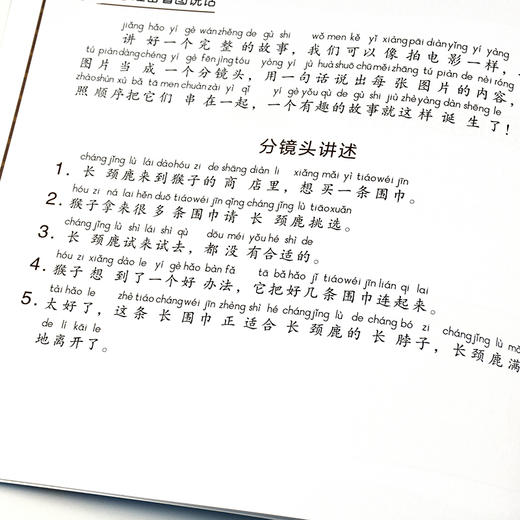 看图说话
jiǎng hǎo yí gè wán zhěng de gù shi wǒ men kě yǐ xiàng pāi diàn yǐng yí yàng
讲好一个完整的故事，我们可以像拍电影一样，
tú piàn dàng chéng yí gè fēn jìng tóu yòng yí jù huà shuō chū měi zhāng tú piàn de nèi róng
图片当成一个分镜头，用一句话说出每张图片的内容，
zhào shùn xù bǎ tā men chuàn zài yì qǐ yí gè yǒu qù de gù shi jiù zhè yàng dàn shēng le
照顺序把它们串在一起，一个有趣的故事就这样诞生了！
分镜头讲述
cháng jǐng lù lái dào hóu zi de shāng diàn lǐ xiǎng mǎi yì tiáo wéi jīn
1. 长颈鹿来到猴子的商店里，想买一条围巾。
hóu zi ná lai hěn duō tiáo wéi jīn qǐng cháng jǐng lù tiāo xuǎn
2. 猴子拿来很多条围巾请长颈鹿挑选。
cháng jǐng lù shì lái shì qù dōu méi yǒu hé shì de
3. 长颈鹿试来试去，都没有合适的。
hóu zi xiǎng dào le yí gè hǎo bàn fǎ tā bǎ hǎo jǐ tiáo wéi jīn lián qi lai
4. 猴子想到了一个好办法，它把好几条围巾连起来。
tài hǎo le zhè tiáo cháng wéi jīn zhèng shì hé cháng jǐng lù de cháng bó zi cháng jǐng lù mǎ
5. 太好了，这条长围巾正适合长颈鹿的长脖子，长颈鹿满
de lí kāi le
地离开了。